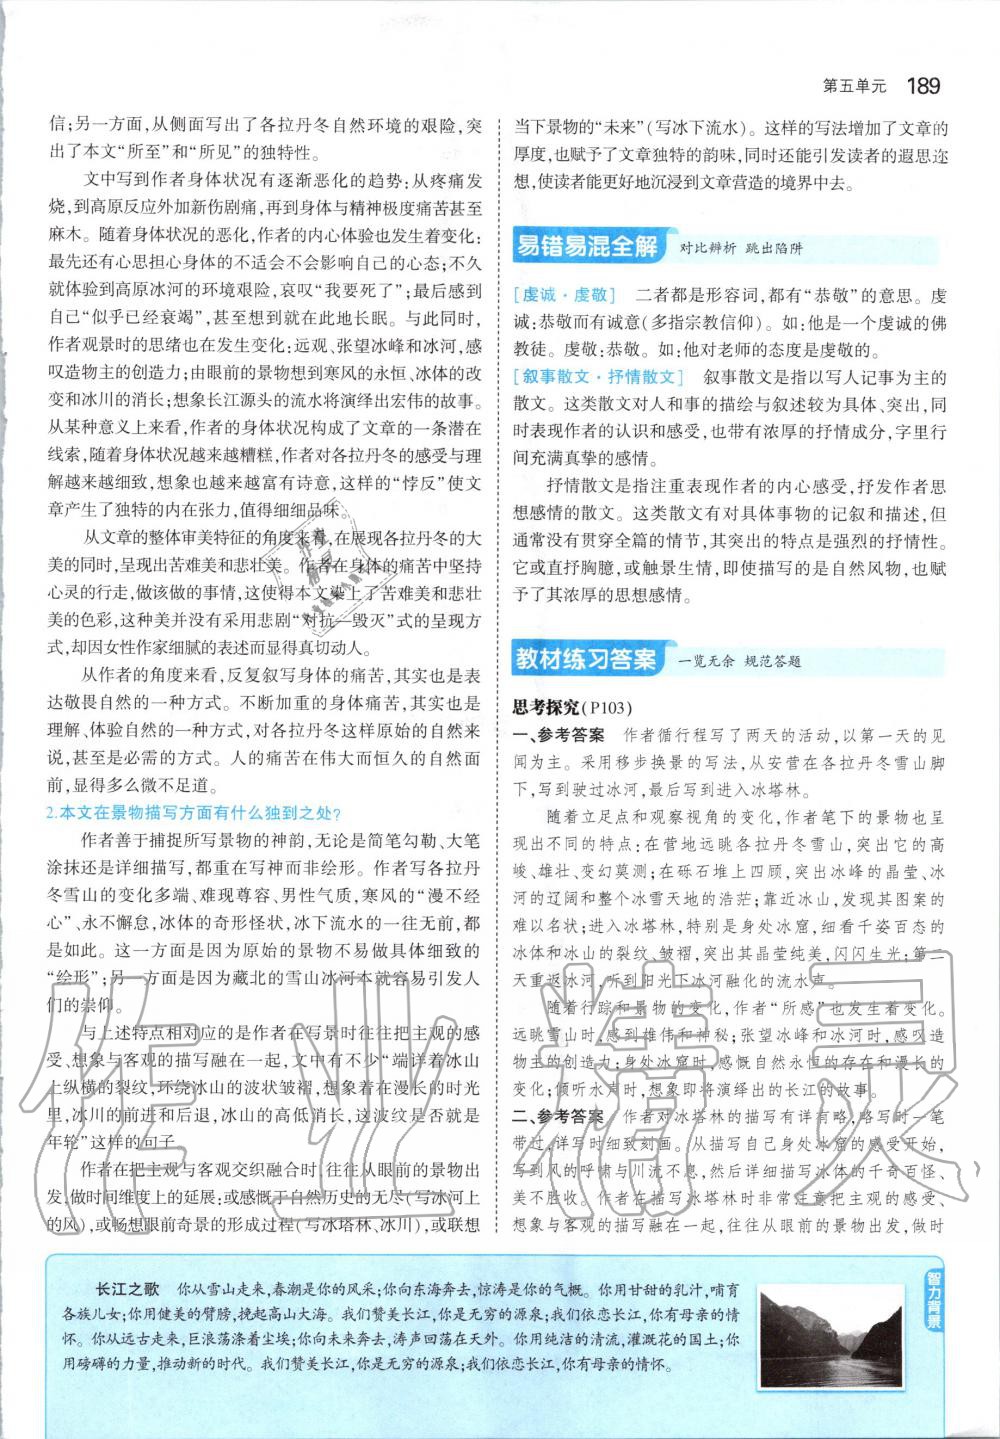 第五单元 189
信;另一方面,从侧面写出了各拉丹冬自然环境的艰险,突
出了本文“所至”和“所见”的独特性。
文中写到作者身体状况有逐渐恶化的趋势:从疼痛发
烧,到高原反应外加新伤剧痛,再到身体与精神极度痛苦甚至
麻木。随着身体状况的恶化,作者的内心体验也发生着变化:
最先还有心思担心身体的不适会不会影响自己的心态;不久
就体验到高原冰河的环境艰险,哀叹“我要死了”;最后感到
自己“似乎已经衰竭”,甚至想到就在此地长眠。与此同时,
作者观景时的思绪也在发生变化:远观、张望冰峰和冰河,感
叹造物主的创造力;由眼前的景物想到寒风的永恒、冰体的改
变和冰川的消长;想象长江源头的流水将演绎出宏伟的故事。
从某种意义上来看,作者的身体状况构成了文章的一条潜在
线索,随着身体状况越来越糟糕,作者对各拉丹冬的感受与理
解越来越细致,想象也越来越富有诗意,这样的“悖反”使文
章产生了独特的内在张力,值得细细品味。
从文章的整体审美特征的角度来看,在展现各拉丹冬的大
美的同时,呈现出苦难美和悲壮美。作者在身体的痛苦中坚持
心灵的行走,做该做的事情,这使得本文染上了苦难美和悲壮
美的色彩,这种美并没有采用悲剧“对抗—毁灭”式的呈现方
式,却因女性作家细腻的表述而显得真切动人。
从作者的角度来看,反复叙写身体的痛苦,其实也是表
达敬畏自然的一种方式。不断加重的身体痛苦,其实也是
理解、体验自然的一种方式,对各拉丹冬这样原始的自然来
说,甚至是必需的方式。人的痛苦在伟大而恒久的自然面
前,显得多么微不足道。
2.本文在景物描写方面有什么独到之处?
作者善于捕捉所写景物的神韵,无论是简笔勾勒、大笔
涂抹还是详细描写,都重在写神而非绘形。作者写各拉丹
冬雪山的变化多端、难现尊容、男性气质,寒风的“漫不经
心”、永不懈怠,冰体的奇形怪状,冰下流水的一往无前,都
是如此。这一方面是因为原始的景物不易做具体细致的
“绘形”;另一方面是因为藏北的雪山冰河本就容易引发人
们的崇仰。
与上述特点相对应的是作者在写景时往往把主观的感
受、想象与客观的描写融在一起,文中有不少“端详着冰山
上纵横的裂纹,环绕冰山的波状皱褶,想象着在漫长的时光
里,冰川的前进和后退,冰山的高低消长,这波纹是否就是
年轮”这样的句子。
作者在把主观与客观交织融合时,往往从眼前的景物出
发,做时间维度上的延展;或感慨于自然历史的无尽(写冰河上
的风),或畅想眼前奇景的形成过程(写冰塔林、冰川),或联想
当下景物的“未来”(写冰下流水)。这样的写法增加了文章的
厚度,也赋予了文章独特的韵味,同时还能引发读者的遐思迩
想,使读者能更好地沉浸到文章营造的境界中去。
易错易混全解 对比辨析 跳出陷阱
[虔诚·虔敬] 二者都是形容词,都有“恭敬”的意思。虔
诚:恭敬而有诚意(多指宗教信仰)。如:他是一个虔诚的佛
教徒。虔敬:恭敬。如:他对老师的态度是虔敬的。
[叙事散文·抒情散文] 叙事散文是指以写人记事为主的
散文。这类散文对人和事的描绘与叙述较为具体、突出,同
时表现作者的认识和感受,也带有浓厚的抒情成分,字里行
间充满真挚的感情。
抒情散文是指注重表现作者的内心感受,抒发作者思
想感情的散文。这类散文有对具体事物的记叙和描述,但
通常没有贯穿全篇的情节,其突出的特点是强烈的抒情性。
它或直抒胸臆,或触景生情,即使描写的是自然风物,也赋
予了其浓厚的思想感情。
教材练习答案 一览无余 规范答题
思考探究(P103)
一、参考答案 作者循行程写了两天的活动,以第一天的见
闻为主。采用移步换景的写法,从安营在各拉丹冬雪山脚
下,写到驶过冰河,最后写到进入冰塔林。
随着立足点和观察视角的变化,作者笔下的景物也呈
现出不同的特点:在营地远眺各拉丹冬雪山,突出它的高
峻、雄壮、变幻莫测;在砾石堆上四顾,突出冰峰的晶莹、冰
河的辽阔和整个冰雪天地的浩茫;靠近冰山,发现其图案的
难以名状;进入冰塔林,特别是身处冰窟,细看千姿百态的
冰体和冰山的裂纹、皱褶,突出其晶莹纯美,闪闪生光;第二
天重返冰河,听到阳光下冰河融化的流水声。
随着行踪和景物的变化,作者“所感”也发生着变化。
远眺雪山时,感到雄伟和神秘;张望冰峰和冰河时,感叹造
物主的创造力;身处冰窟时,感慨自然永恒的存在和漫长的
变化;倾听水声时,想象即将演绎出的长江的故事。
二、参考答案 作者对冰塔林的描写有详有略,略写时一笔
带过,详写时细致刻画。从描写自己身处冰窟的感受开始,
写到风的呼啸与川流不息,然后详细描写冰体的千奇百怪、
美不胜收。作者在描写冰塔林时非常注意把主观的感受、
想象与客观的描写融在一起,往往从眼前的景物出发,做时
长江之歌 你从雪山走来,春潮是你的风采;你向东海奔去,惊涛是你的气概。你用甘甜的乳汁,哺育
各族儿女;你用健美的臂膀,挽起高山大海。我们赞美长江,你是无穷的源泉;我们依恋长江,你有母亲的情
怀。你从远古走来,巨浪荡涤着尘埃;你向未来奔去,涛声回荡在天外。你用纯洁的清流,灌溉花的国土;你
用磅礴的力量,推动新的时代。我们赞美长江,你是无穷的源泉;我们依恋长江,你有母亲的情怀。
智力背景
作业精灵